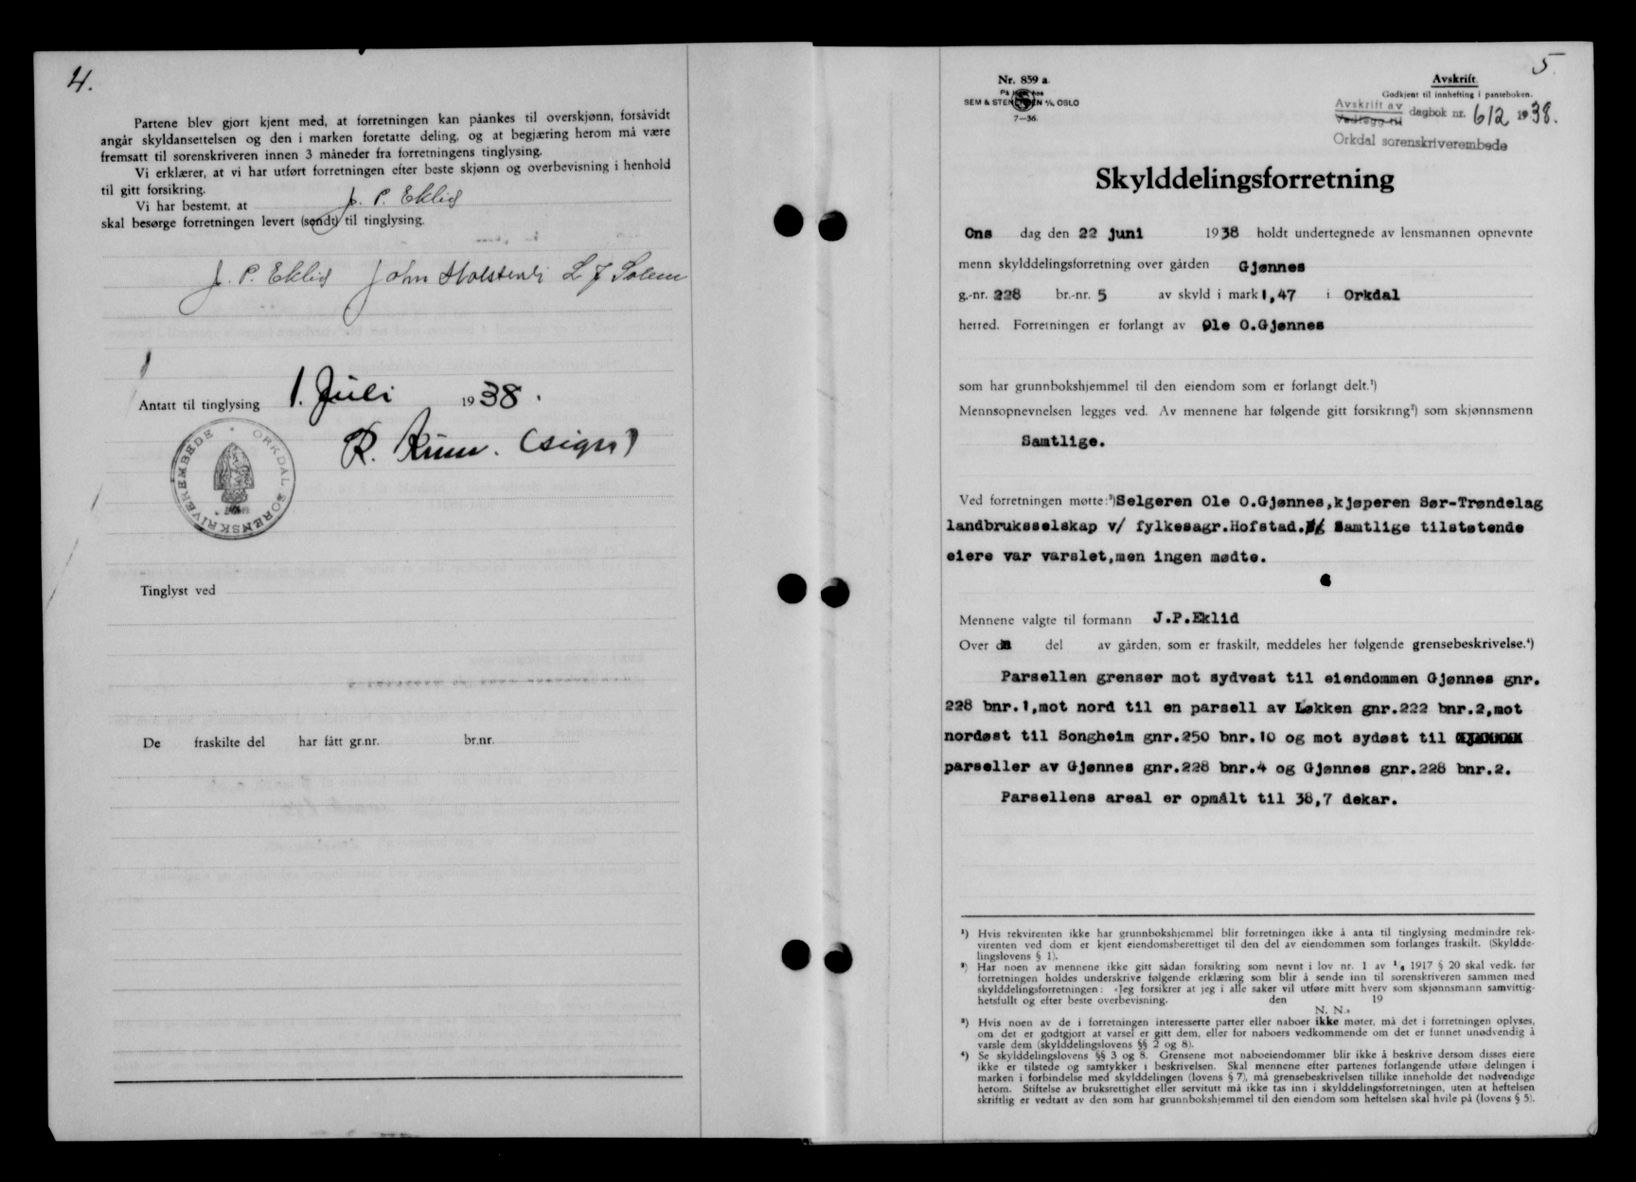 4.
Partene blev gjort kjent med, at forretningen kan påankes til overskjønn, forsåvidt
angår skyldansettelsen og den i marken foretatte deling, og at begjæring herom må være
fremsatt til sorenskriveren innen 3 måneder fra forretningens tinglysing.
Vi erklærer, at vi har utført forretningen efter beste skjønn og overbevisning i henhold
til gitt forsikring.
Vi har bestemt, at J. P. Eklid
skal besørge forretningen levert (sendt) til tinglysing.
J. P. Eklid John L J Solem
Antatt til tinglysing 1. Juli 1938.
R. (sign)
ORKDAL SORENSKRIVEREMBEDE
Tinglyst ved
De fraskilte del har fått gr.nr. br.nr.
5.
Nr. 859 a
SEM & STENERSEN A/S, OSLO
7—36.
Avskrift.
Godkjent til innhefting i panteboken.
Avskrift av
dagbok nr. 612 1938.
Orkdal sorenskriverembede
Skylddelingsforretning
Ons dag den 22 juni 1938 holdt undertegnede av lensmannen opnevnte
menn skylddelingsforretning over gården Gjønnes
g.-nr. 228 br.-nr. 5 av skyld i mark 1,47 i Orkdal
herred. Forretningen er forlangt av Ole O.Gjønnes
som har grunnbokshjemmel til den eiendom som er forlangt delt.¹)
Mennsopnevnelsen legges ved. Av mennene har følgende gitt forsikring²) som skjønnsmenn
Samtlige.
Ved forretningen møtte:³) Selgeren Ole O.Gjønnes,kjøperen Sør-Trøndelag
landbruksselskap v/ fylkesagr.Hofstad. Samtlige tilstøtende
eiere var varslet,men ingen mødte.
Mennene valgte til formann J.P.Eklid
Over den del av gården, som er fraskilt, meddeles her følgende grensebeskrivelse.⁴)
Parsellen grenser mot sydvest til eiendommen Gjønnes gnr.
228 bnr.1,mot nord til en parsell av Løkken gnr.222 bnr.2,mot
nordøst til Songheim gnr.250 bnr.10 og mot sydøst til
parseller av Gjønnes gnr.228 bnr.4 og Gjønnes gnr.228 bnr.2.
Parsellens areal er opmålt til 38,7 dekar.
¹) Hvis rekvirenten ikke har grunnbokshjemmel blir forretningen ikke å anta til tinglysing medmindre rek-
virenten ved dom er kjent eiendomsberettiget til den del av eiendommen som forlanges fraskilt. (Skyldde-
lingslovens § 1).
²) Har noen av mennene ikke gitt sådan forsikring som nevnt i lov nr. 1 av 1/6 1917 § 20 skal vedk. før
forretningen holdes underskrive følgende erklæring som blir å sende inn til sorenskriveren sammen med
skylddelingsforretningen: «Jeg forsikrer at jeg i alle saker vil utføre mitt hverv som skjønnsmann samvittig-
hetsfullt og efter beste overbevisning. den 19
N. N.»
³) Hvis noen av de i forretningen interesserte parter eller naboer ikke møter, må det i forretningen oplyses,
om det er godtgjort at varsel er gitt dem, eller for naboers vedkommende om det er funnet unødvendig å
varsle dem (skylddelingslovens §§ 2 og 8).
⁴) Se skylddelingslovens §§ 3 og 8. Grensene mot naboeiendommer blir ikke å beskrive dersom disses eiere
ikke er tilstede og samtykker i beskrivelsen. Skal mennene efter partenes forlangende utføre delingen i
marken i forbindelse med skylddelingen (lovens § 7), må grensebeskrivelsen tillike inneholde det nødvendige
herom. Stiftelse av bruksrettighet eller servitutt må ikke tas inn i skylddelingsforretningen, uten at heftelsen
skriftlig er vedtatt av den som har grunnbokshjemmel til den eiendom som heftelsen skal hvile på (lovens § 5).